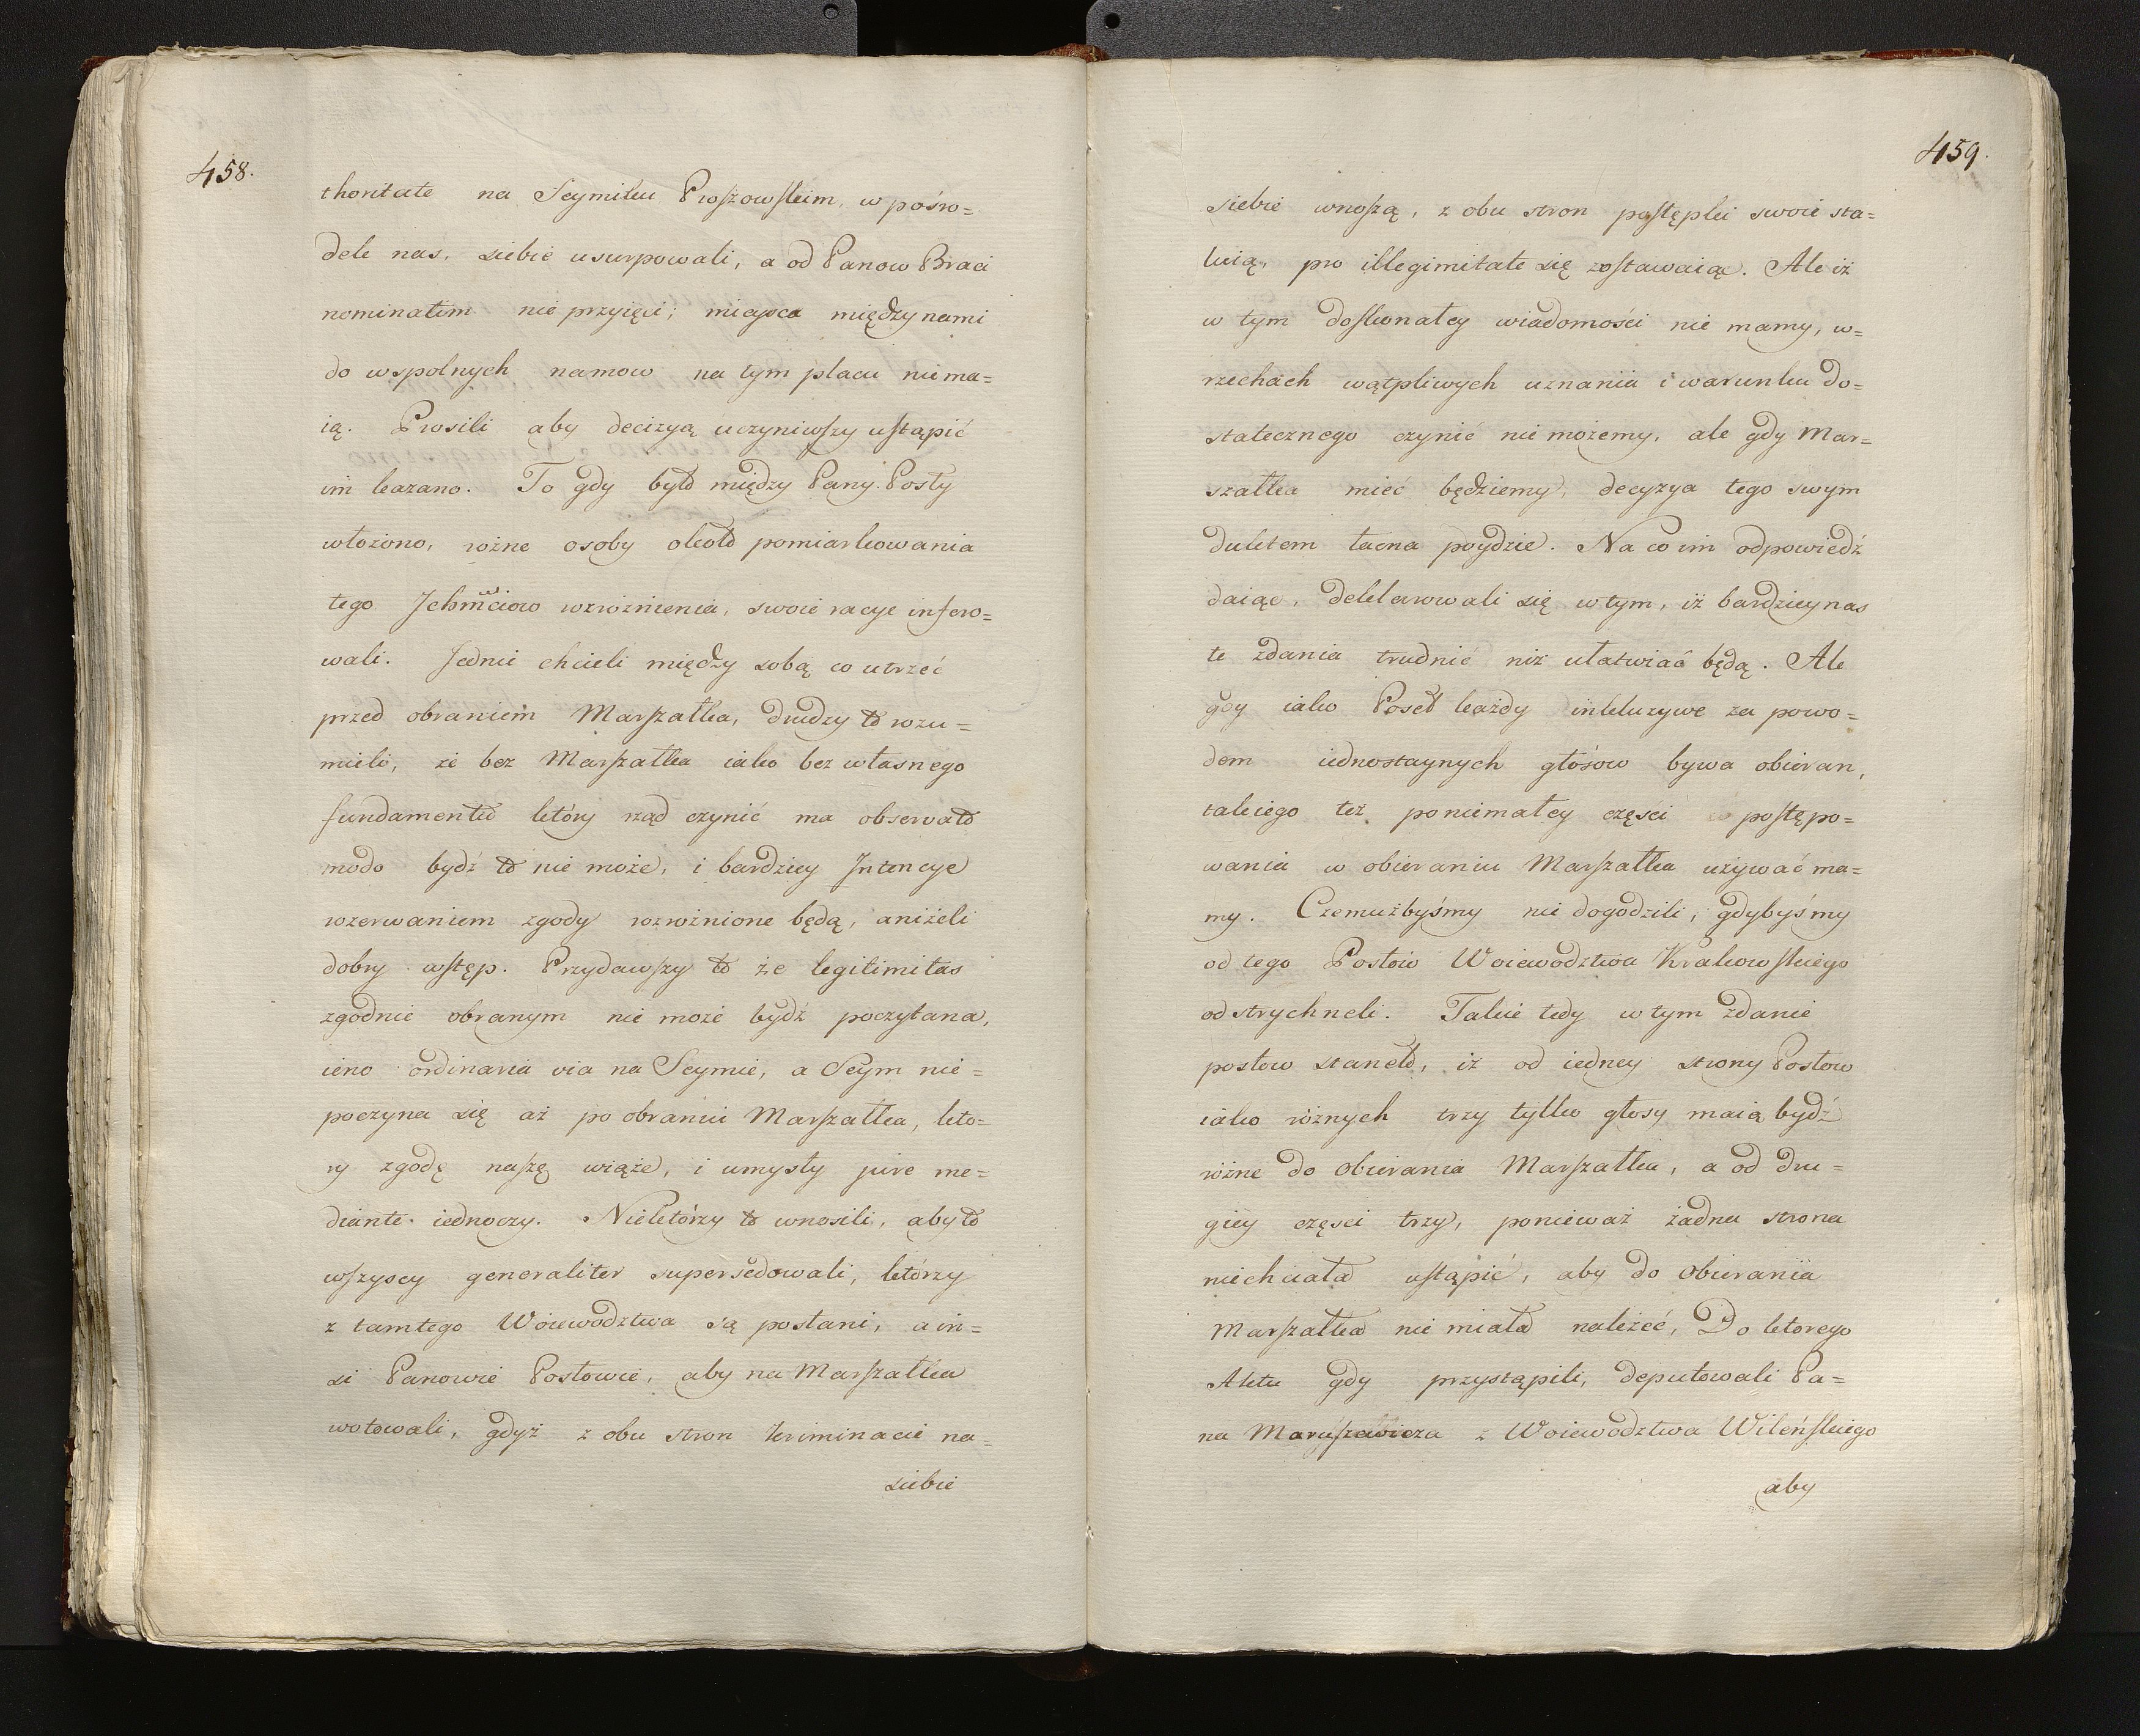 458.
thoritate na Seymiku Proszowskim, w pośro=
dek nas, siebie usurpowali, a od Panow Braci
nominatim nie przyięci; mieysca między nami
do wspolnych namow na tym placu nie ma=
ią. Prosili aby decizyą uczyniwszy ustąpić
im kazano. To gdy było między Pany Posły
włożono, rożne osoby około pomiarkowania
tego Jchmćiow rozrożnienia, swoie racye infero=
wali. Jedni chcieli między sobą co utrzeć
przed obraniem Marszałka, drudzy to rozu=
mieli, że bez Marszałka iako bez własnego
fundamentu który rząd czynić ma observato
modo bydź to nie może, i bardziey Jntencye
rozerwaniem zgody rozrożnione będą, aniżeli
dobry wstęp. Przydawszy to że legitimitas
zgodnie obranym nie może bydź poczytana,
ieno ordinaria via na Seymie, a Seym nie=
poczyna się aż po obraniu Marszałka, kto=
ry zgodę naszę wiąże, i umysły jure me=
diante iednoczy. Niektórzy to wnosili, aby to
wszyscy generaliter supersedowali, którzy
z tamtego Woiewodztwa są posłani, a in=
si Panowie Posłowie, aby na Marszałka
wotowali, gdyż z obu stron kriminacie na=
siebie
459.
siebie wnoszą, z obu stron postępki swoie sta=
wią, pro illegimitate się zostawaiąc. Ale iż
w tym doskonałey wiadomości nie mamy, w=
rzechach wątpliwych uznania i warunku do=
statecznego czynić nie możemy, ale gdy Mar=
szałka mieć będziemy, decyzya tego swym
duktem łacna poydzie. Na co im odpowiedź
daiąc, deklarowali się w tym, iż bardziey nas
te zdania trudnić niż ułatwiać będą. Ale
gdy iako Poseł każdy inkluzywe za powo=
dem iednostaynych głosow bywa obieran,
takiego też poniemałey częsci postępo=
wania w obieraniu Marszałka używać ma=
my. Czemużbyśmy nie dogodzili, gdybyśmy
od tego Posłow Woiewodztwa Krakowskiego
odstrychneli. Takie tedy w tym zdanie
posłow staneło, iż od iedney strony Posłow
iako rożnych trzy tylko głosy maią bydź
rożne do obierania Marszałka, a od dru=
giey częsci trzy, ponieważ żadna strona
niechciała ustąpić, aby do obierania
Marszałka nie miała należeć, Do ktorego
Aktu gdy przystąpili, deputowali Pa=
na Maruszewicza z Woiewodztwa Wileńskiego
aby